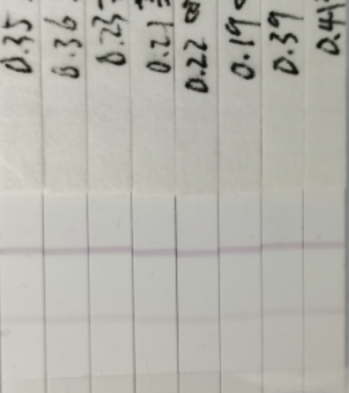 0.35
0.36
0.23
0.21
0.22
0.19
0.39
0.41